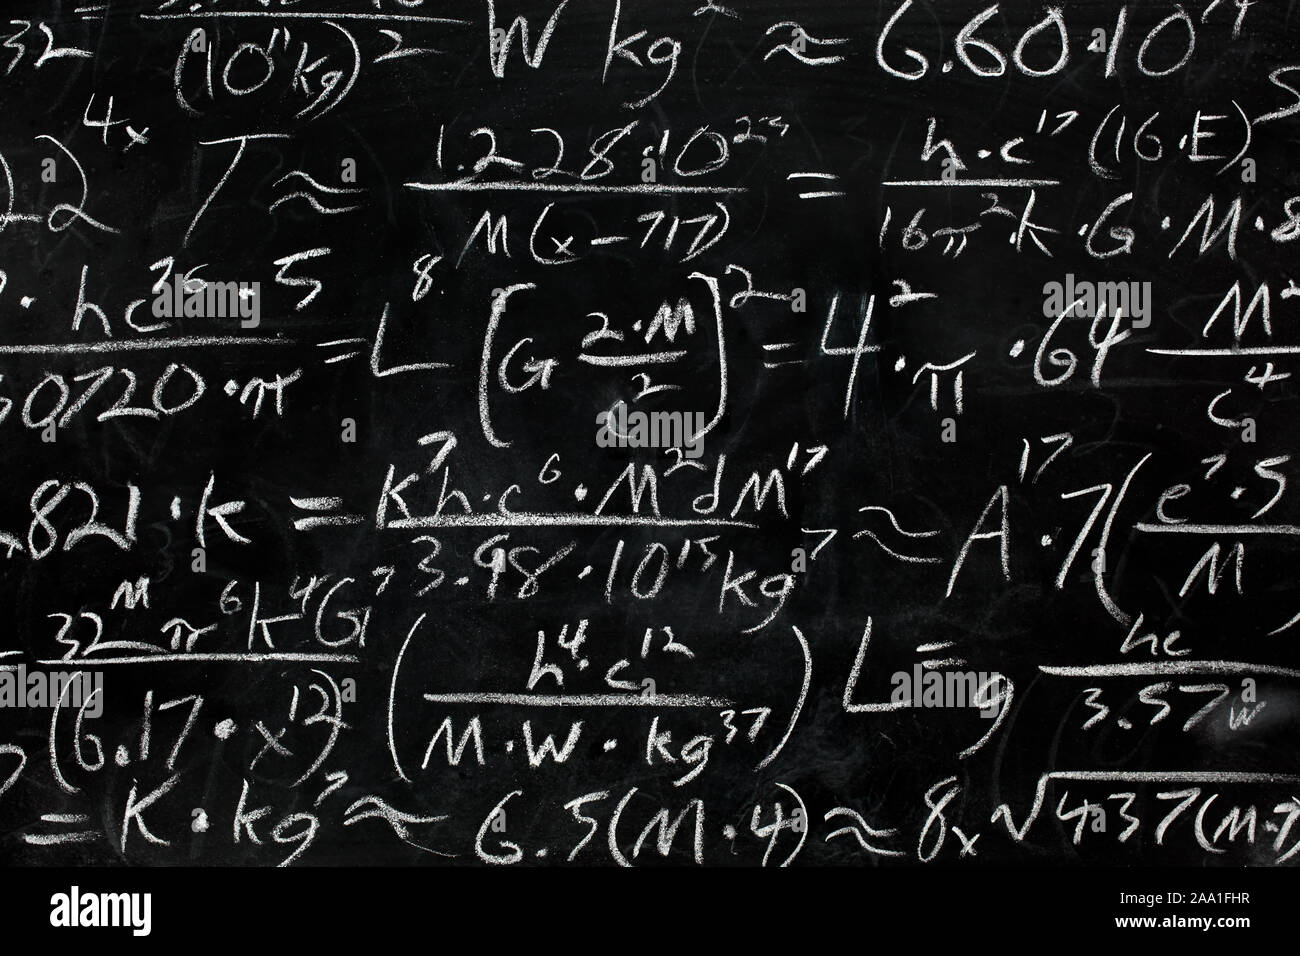 32 = (10¹¹kg)² W kg² ≈ 6.60·10
22⁴ˣ T ≈ 1.228·10²³ / M(x-717) = h·c¹⁷(16·E) / 16π²·k·G·M·8
· hc²⁶·5 / 0720·π = L⁸ [G 2·M / c²]² = 4²·π·64 M² / c⁴
821·k = K⁷h·c⁶·M²dM¹⁷ / 3.98·10¹⁵kg⁷ ≈ A¹⁷·7(e⁷·5 / M
32ᴹπ⁶k⁴G⁷ / (6.17·x¹²) (h⁴·c¹² / M·W·kg³⁷) L=9 hc / 3.57w
= K·kg⁷ ≈ 6.5(M·4) ≈ 8x √437(M·7)
alamy
Image ID: 2AA1FHR
www.alamy.com